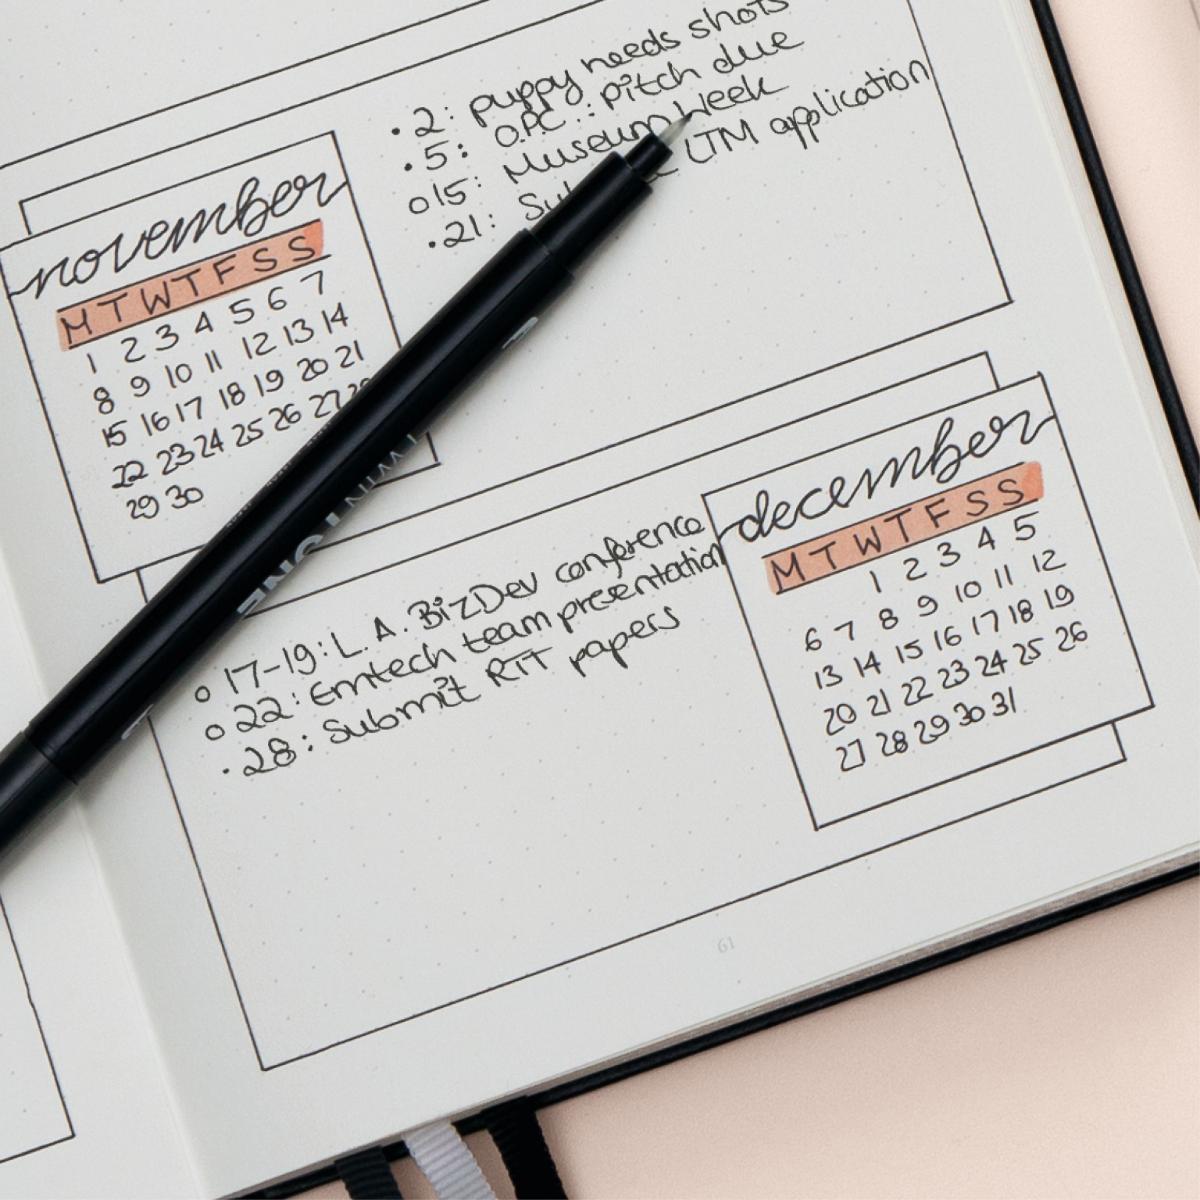 • 2: puppy needs shots
• 5: OPC: pitch due
o 15: Museum Week
• 21: LTM application
november
M T W T F S S
1 2 3 4 5 6 7
8 9 10 11 12 13 14
15 16 17 18 19 20 21
22 23 24 25 26 27 28
29 30
december
M T W T F S S
1 2 3 4 5
6 7 8 9 10 11 12
13 14 15 16 17 18 19
20 21 22 23 24 25 26
27 28 29 30 31
o 17-19: L.A. BizDev conference
o 22: Emtech team presentation
• 28: Submit RTT papers
61